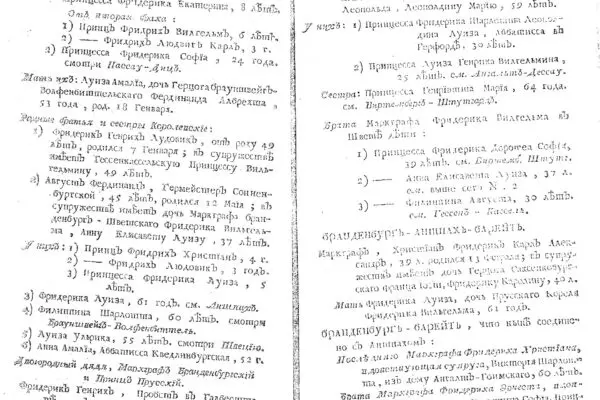 Принцесса Фридерика Екатерина, 8 лѣтъ.
Отъ втораго брака:
1) Принцъ Фридрихъ Вилгельмъ, 6 лѣтъ.
2) —— Фридрихъ Людвигъ Карлъ, 3 г.
3) Принцесса Фридерика Софіа, 24 года.
смотри Нассау-Дицъ.
Мать ихъ: Луиза Амаліа, дочь Герцога брауншвейгъ-
Волфенбиттельского Фердинанда Албрехта,
53 года, род. 18 Генваря.
Родные братья и сестры Королевскіе:
1) Фридерикъ Генрихъ Лудовикъ, отъ роду 49
лѣтъ, родился 7 Генваря; въ супружествѣ
имѣетъ Гессенкассельскую Принцессу Виль-
гельмину, 49 лѣтъ.
2) Августъ Фердинандъ, Гермейстеръ Соннен-
бургской, 45 лѣтъ, родился 12 Маія; въ
супружествѣ имѣетъ дочь Маркграфа бран-
денбургъ-Шветскаго Фридерика Вилгель-
ма, Анну Елисавету Луизу, 37 лѣтъ.
У нихъ: 1) Принцъ Фридрихъ Христіанъ, 4 г.
2) —— Фридрихъ Людовикъ, 3 годъ.
3) Принцесса Фридерика Луиза, 5
лѣтъ.
3) Фридерика Луиза, 61 годъ. см. Аншпахъ.
4) Филиппина Шарлошша, 60 лѣтъ. смотри
Брауншвейгъ-Волфенбиттель.
5) Луиза Улрика, 55 лѣтъ. смотри Швецію.
6) Анна Амаліа, Аббатисса Кведлинбургская, 52 г.
Двоюродный дядя, Маркграфъ Бранденбургскій
и Принцъ Прусскій.
Фридерикъ Генрихъ, Пробстъ въ
Леопольда, Леопольдину Марію, 59 лѣтъ.
У нихъ: 1) Принцесса Фридерика Шарлотта Леопол-
дина Луиза, Аббатисса въ
Герфордѣ, 30 лѣтъ.
2) Принцесса Луиза Фридерика Вилгельмина,
25 лѣтъ. см. Ангальтъ-Дессау.
Сестра: Принцесса Генріэтта Маріа, 64 года.
см. Виртембергъ-Штутгардъ.
Брата Маркграфа Фридерика Вилгельма въ
Шветѣ дѣти:
1) Принцесса Фридерика Доротеа Софіа,
39 лѣтъ. см. Виртемб. Штутг.
2) —— Анна Елисавета Луиза, 37 л.
см. выше сего N. 2
3) —— Филиппина Августа, 30 лѣтъ.
см. Гессенъ-Кассель.
БРАНДЕНБУРГЪ-АНШПАХЪ-БАРЕЙТЪ.
Маркграфъ, Христіанъ Фридерикъ Карлъ Алек-
сандръ, 39 л. родился 13 Февраля; въ супру-
жествѣ имѣетъ дочь Герцога Саксенкобург-
скаго Франца Іосіи, Фридерику Каролину, 40 л.
Мать Фридерика Луиза, дочь Прусскаго Короля
Фридерика Вилгельма, 61 годъ.
БРАНДЕНБУРГЪ-БАРЕЙТЪ, что нынѣ соедине-
но съ Аншпахомъ:
Послѣдняго Маркграфа Фридерика Христіана,
вдовствующая супруга, Викторія Шарлот-
та, изъ дому Ангалтъ-Гоимскаго, 60 лѣтъ.
Брата Маркграфа Фридерика Эрнеста, вдов-